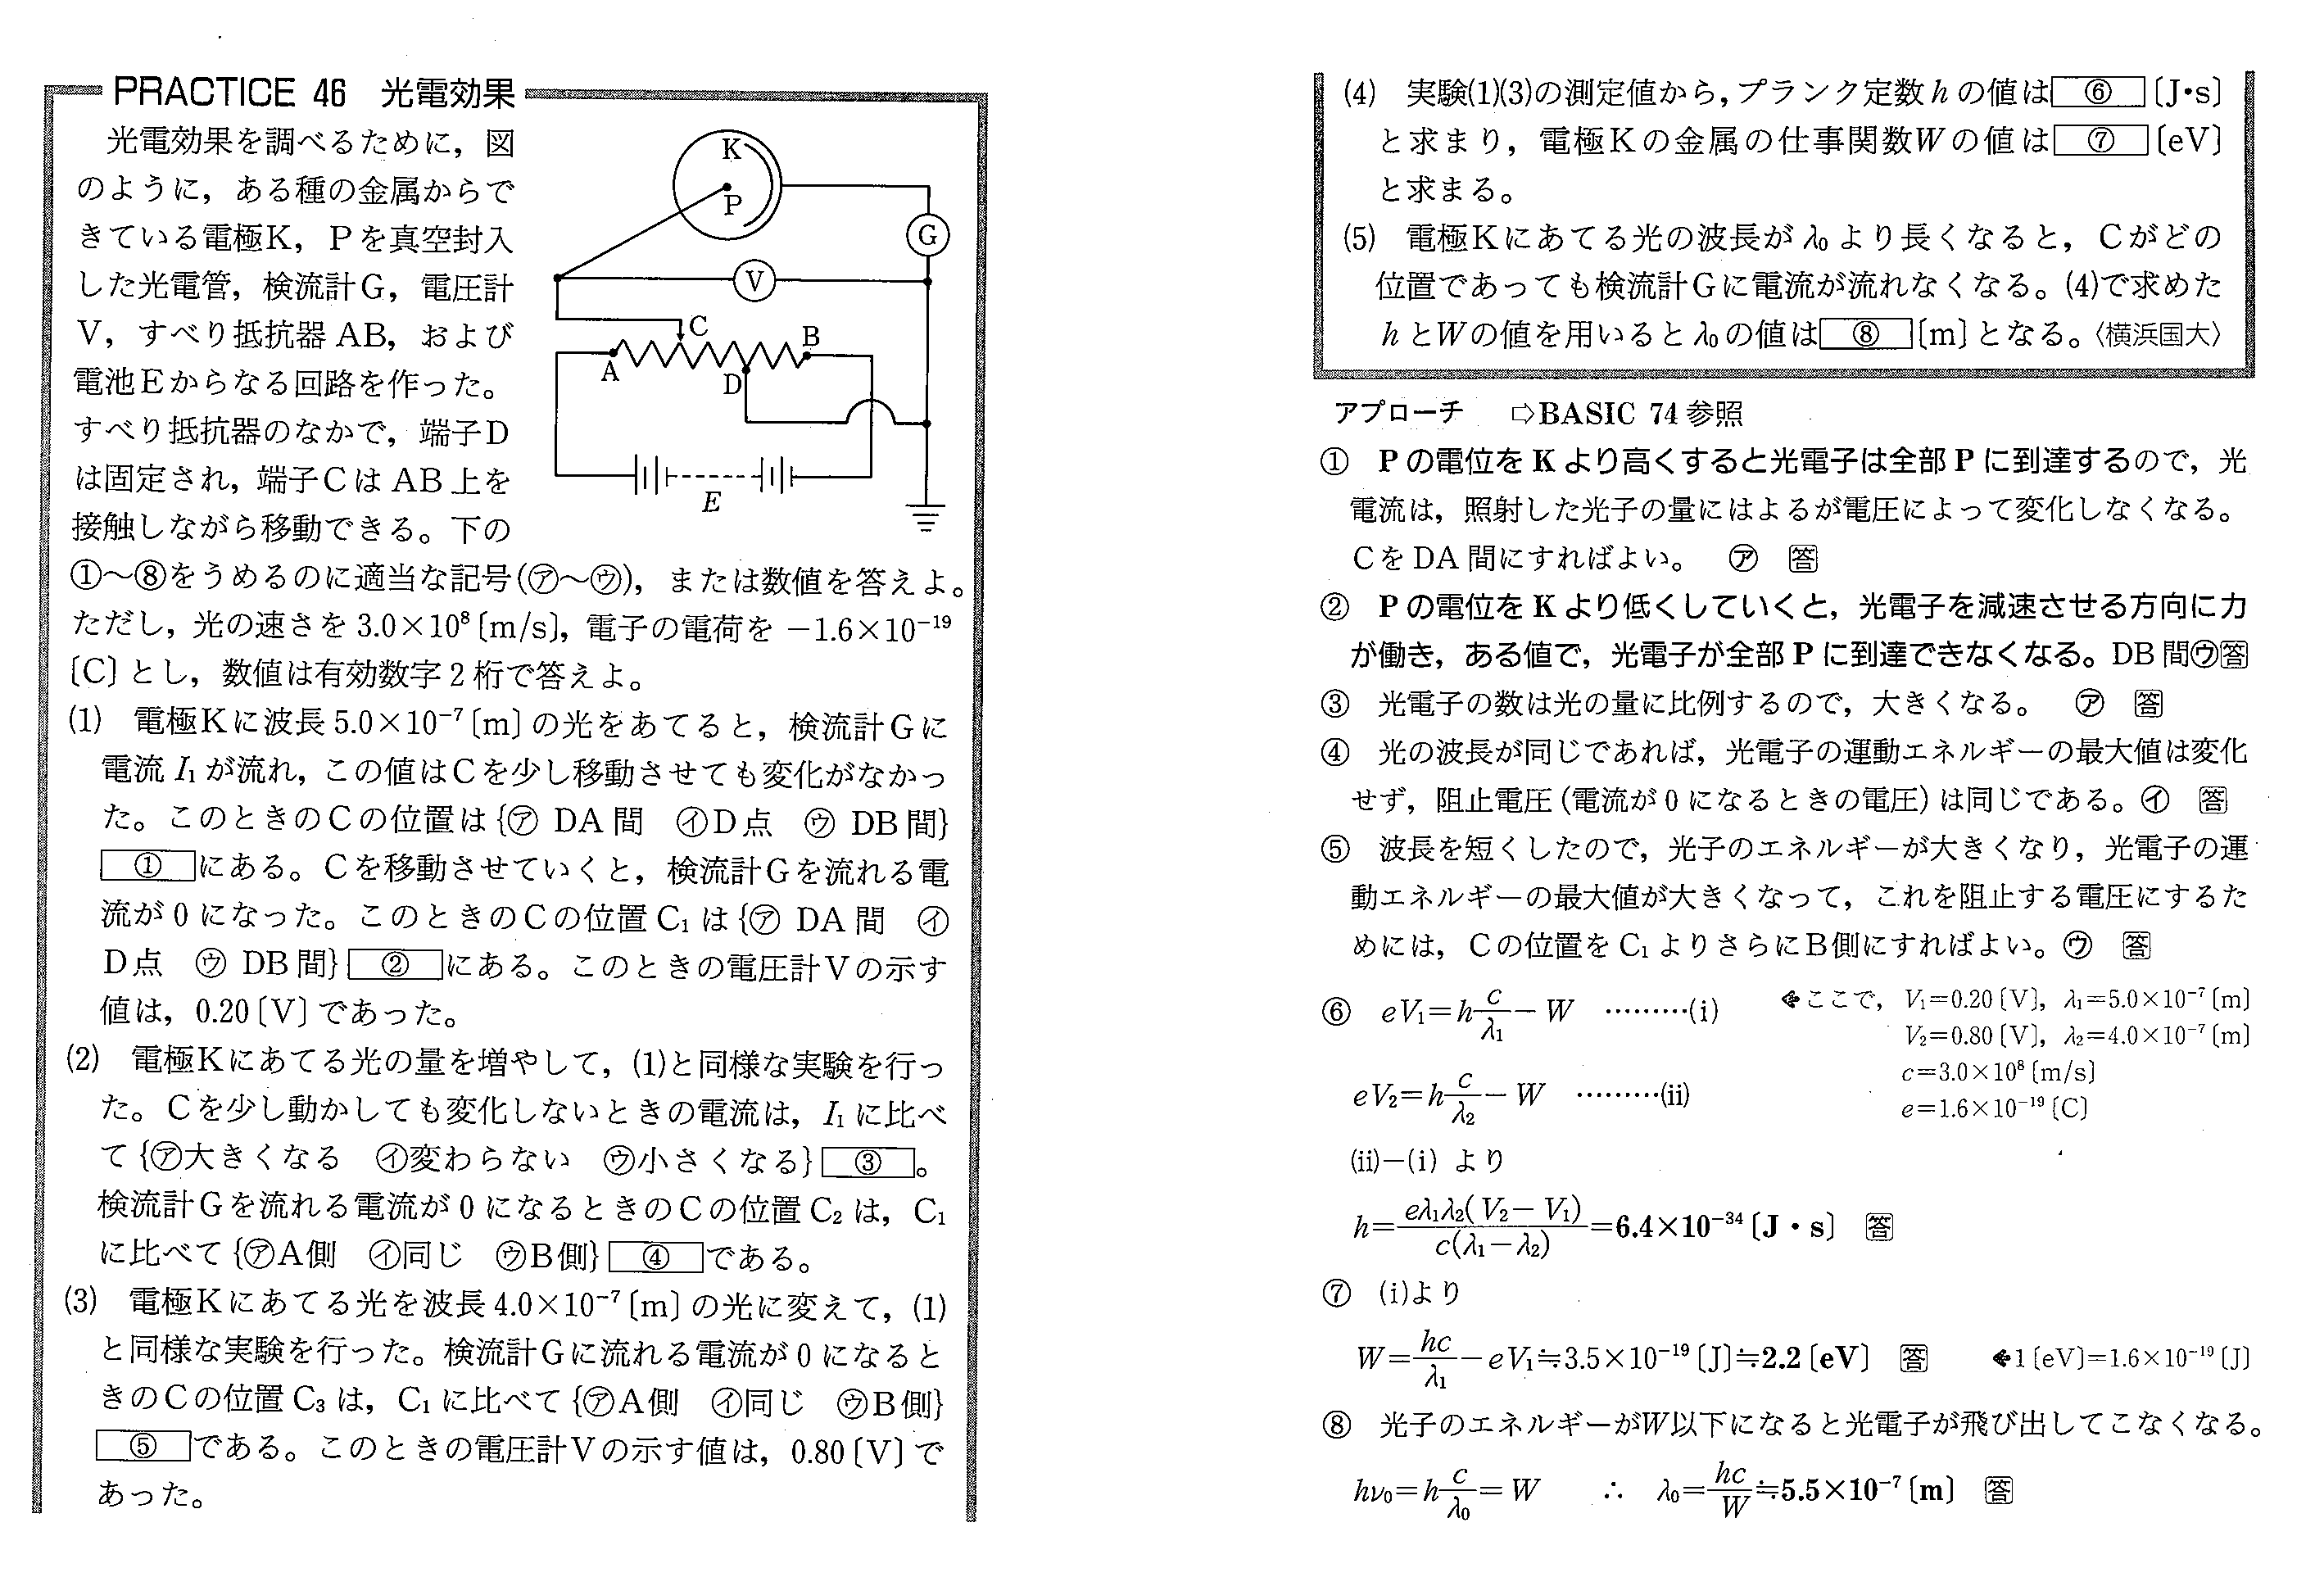 PRACTICE 46 光電効果
光電効果を調べるために，図
のように，ある種の金属からで
きている電極K，Pを真空封入
した光電管，検流計G，電圧計
V，すべり抵抗器AB，および
電池Eからなる回路を作った。
すべり抵抗器のなかで，端子D
は固定され，端子CはAB上を
接触しながら移動できる。下の
K
P
G
V
C
B
A
D
E
①～⑧をうめるのに適当な記号(㋐～㋒)，または数値を答えよ。
ただし，光の速さを3.0×10⁸〔m/s〕，電子の電荷を−1.6×10⁻¹⁹
〔C〕とし，数値は有効数字2桁で答えよ。
(1) 電極Kに波長5.0×10⁻⁷〔m〕の光をあてると，検流計Gに
電流I₁が流れ，この値はCを少し移動させても変化がなかっ
た。このときのCの位置は{㋐ DA間 ㋑D点 ㋒ DB間}
①にある。Cを移動させていくと，検流計Gを流れる電
流が0になった。このときのCの位置C₁は{㋐ DA間 ㋑
D点 ㋒ DB間}②にある。このときの電圧計Vの示す
値は，0.20〔V〕であった。
(2) 電極Kにあてる光の量を増やして，(1)と同様な実験を行っ
た。Cを少し動かしても変化しないときの電流は，I₁に比べ
て{㋐大きくなる ㋑変わらない ㋒小さくなる}③。
検流計Gを流れる電流が0になるときのCの位置C₂は，C₁
に比べて{㋐A側 ㋑同じ ㋒B側}④である。
(3) 電極Kにあてる光を波長4.0×10⁻⁷〔m〕の光に変えて，(1)
と同様な実験を行った。検流計Gに流れる電流が0になると
きのCの位置C₃は，C₁に比べて{㋐A側 ㋑同じ ㋒B側}
⑤である。このときの電圧計Vの示す値は，0.80〔V〕で
あった。
(4) 実験(1)(3)の測定値から，プランク定数hの値は⑥〔J･s〕
と求まり，電極Kの金属の仕事関数Wの値は⑦〔eV〕
と求まる。
(5) 電極Kにあてる光の波長がλ₀より長くなると，Cがどの
位置であっても検流計Gに電流が流れなくなる。(4)で求めた
hとWの値を用いるとλ₀の値は⑧〔m〕となる。〈横浜国大〉
アプローチ ⇨BASIC 74参照
① Pの電位をKより高くすると光電子は全部Pに到達するので，光
電流は，照射した光子の量にはよるが電圧によって変化しなくなる。
CをDA間にすればよい。 ㋐ 答
② Pの電位をKより低くしていくと，光電子を減速させる方向に力
が働き，ある値で，光電子が全部Pに到達できなくなる。DB間㋒答
③ 光電子の数は光の量に比例するので，大きくなる。 ㋐ 答
④ 光の波長が同じであれば，光電子の運動エネルギーの最大値は変化
せず，阻止電圧(電流が0になるときの電圧)は同じである。㋑ 答
⑤ 波長を短くしたので，光子のエネルギーが大きくなり，光電子の運
動エネルギーの最大値が大きくなって，これを阻止する電圧にするた
めには，Cの位置をC₁よりさらにB側にすればよい。㋒ 答
⑥ eV₁=h c/λ₁ − W ………(i) ←ここで，V₁=0.20〔V〕，λ₁=5.0×10⁻⁷〔m〕
V₂=0.80〔V〕，λ₂=4.0×10⁻⁷〔m〕
c=3.0×10⁸〔m/s〕
eV₂=h c/λ₂ − W ………(ii)
e=1.6×10⁻¹⁹〔C〕
(ii)−(i) より
h= eλ₁λ₂(V₂−V₁)/c(λ₁−λ₂) =6.4×10⁻³⁴〔J・s〕 答
⑦ (i)より
W= hc/λ₁ − eV₁≒3.5×10⁻¹⁹〔J〕≒2.2〔eV〕 答 ←1〔eV〕=1.6×10⁻¹⁹〔J〕
⑧ 光子のエネルギーがW以下になると光電子が飛び出してこなくなる。
hν₀=h c/λ₀ = W ∴ λ₀= hc/W ≒5.5×10⁻⁷〔m〕 答